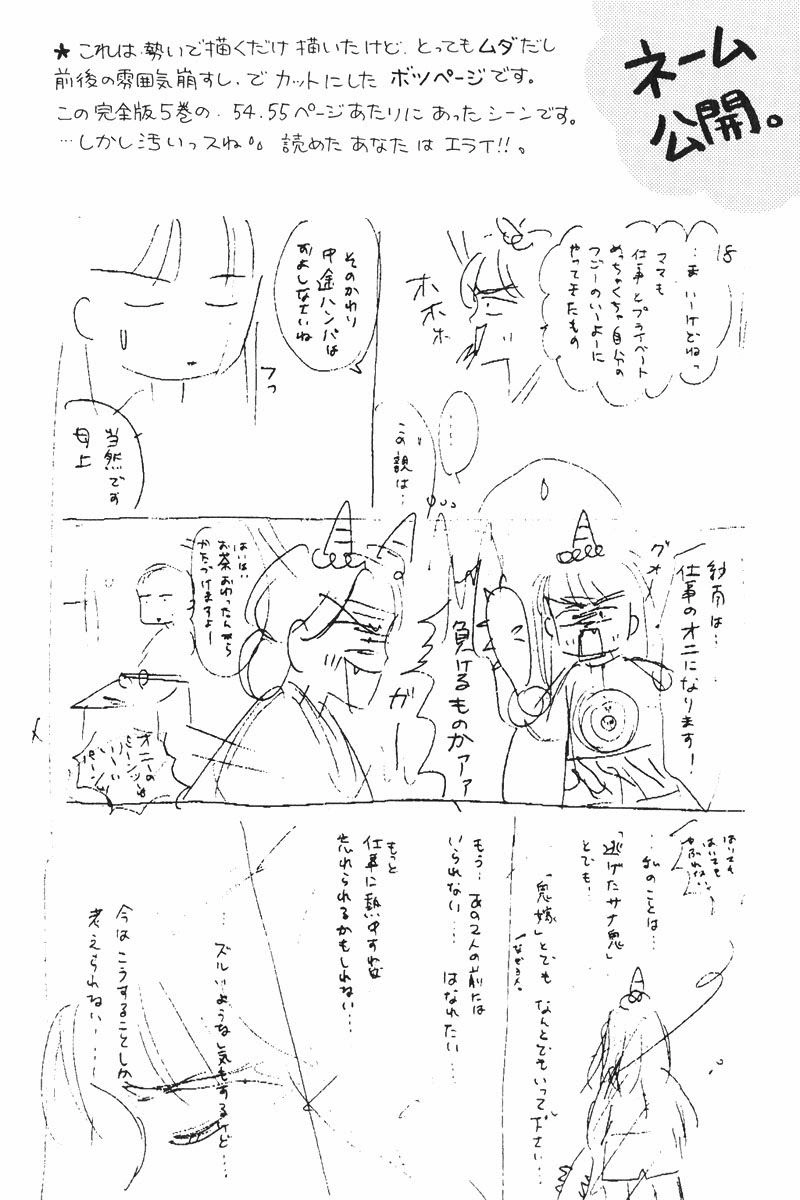 ネーム
公開。
★ これは勢いで描くだけ描いたけど、とってもムダだし
前後の雰囲気崩すし、でカットにしたボツページです。
この完全版5巻の、54.55ページあたりにあったシーンです。
…しかし汚いっスね。 読めたあなたはエライ!!。
18
…ま いーけどねっ
ママも
仕事とプライベート
めっちゃくちゃ自分の
つごーのいいよーに
やってきたもの
ホホホ
そのかわり
中途ハンパは
およしなさいね
フっ
当然です
母上
……
この親は…
紗南は…
仕事のオニになります!
グオー
負けるものかァァ
ガ
はいはい
お茶おわったんなら
かたづけますよー
オニーの
パーンツは
いーい
パーンツ
はいても
はいても
やぶれない
…私のことは…
「逃げたサナ鬼」
とでも…
「鬼嫁」とでも なんとでもいって下さい…
もう…あの2人の前には
いられない… はなれたい…
もっと
仕事に熱中すれば
忘れられるかもしれない…
…ズルいような気もするけど…
今はこうすることしか
考えられない…